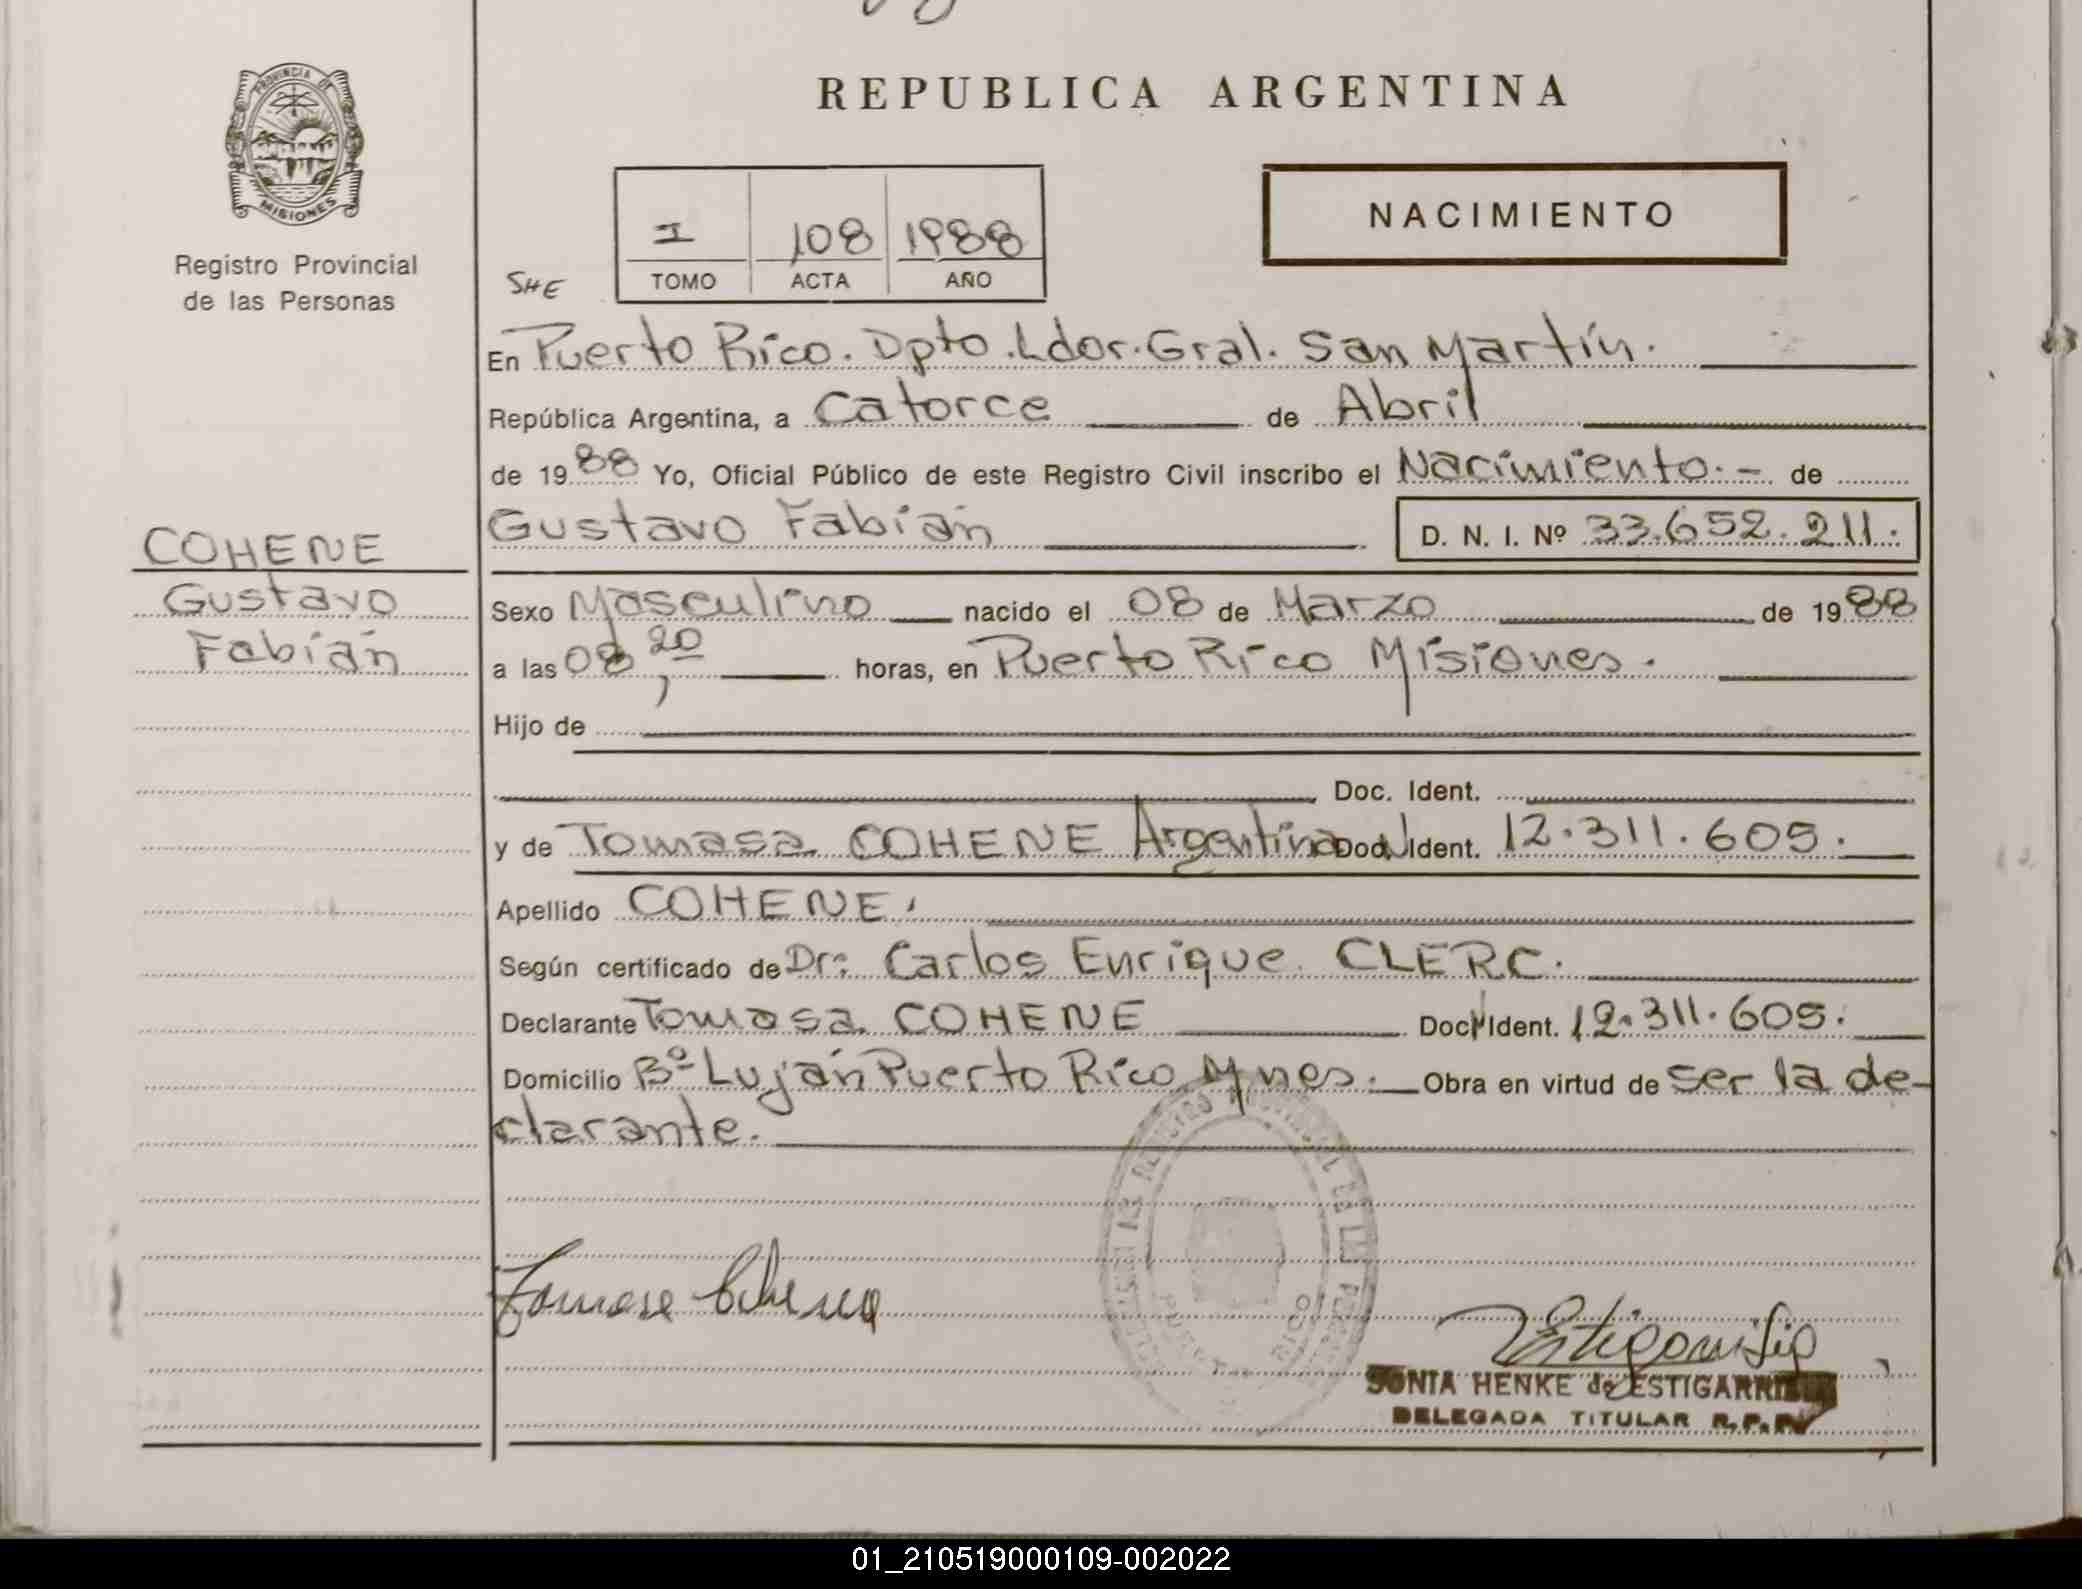 PROVINCIA DE
MISIONES
Registro Provincial
de las Personas
REPUBLICA ARGENTINA
NACIMIENTO
I 108 1988
TOMO ACTA AÑO
SHE
En Puerto Rico. Dpto. Ldor. Gral. San Martín.
República Argentina, a Catorce de Abril
de 1988 Yo, Oficial Público de este Registro Civil inscribo el Nacimiento.- de
COHENE
Gustavo
Fabián
Gustavo Fabián D. N. I. Nº 33.652.211.
Sexo Masculino nacido el 08 de Marzo de 1988
a las 08,20 horas, en Puerto Rico Misiones.
Hijo de
Doc. Ident.
y de Tomasa COHENE Argentina Doc. Ident. 12.311.605.
Apellido COHENE.
Según certificado de Dr: Carlos Enrique CLERC.
Declarante Tomasa COHENE Doc. Ident. 12.311.605.
Domicilio Bº Luján Puerto Rico Mnes. Obra en virtud de ser la de-
clarante.
PUERTO RICO
Tomasa Cohene
SONIA HENKE de ESTIGARRIBIA
DELEGADA TITULAR R.P.P.
01_210519000109-002022